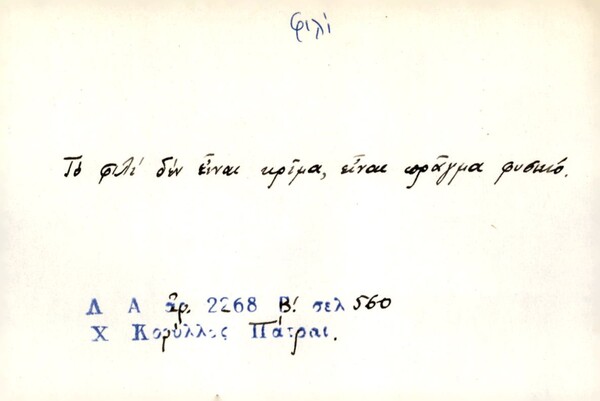 φιλί
Τό φιλί δέν εἶναι κρῖμα, εἶναι πρᾶγμα φυσικό.
Λ Α ἀρ. 2268 Β! σελ 560
Χ Κορύλλος Πάτραι.